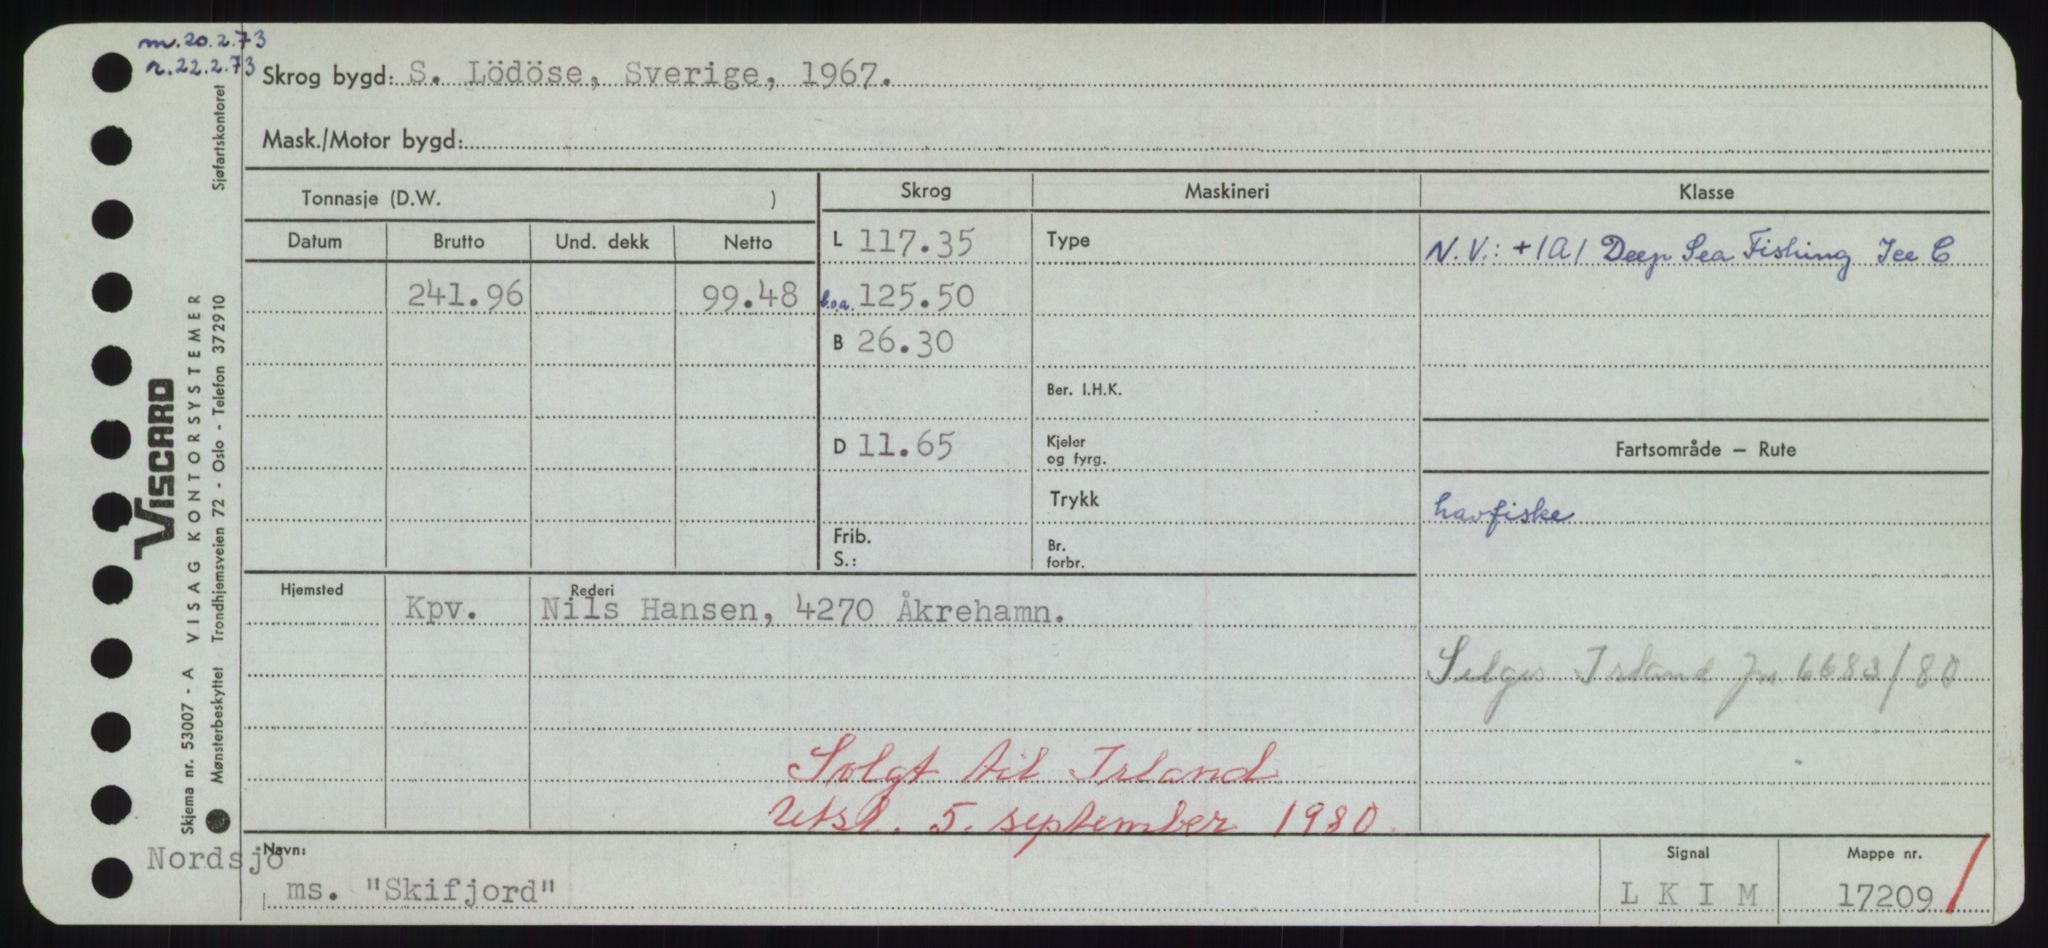 m. 20.2.73
r. 22.2.73
Skrog bygd: S. Lödöse, Sverige, 1967.
Mask./Motor bygd:
Tonnasje (D.W. )
Skrog
Maskineri
Klasse
Datum Brutto Und. dekk Netto
L 117.35
Type
N.V.: +1A1 Deep Sea Fishing Ice C
241.96 99.48
l.o.a. 125.50
B 26.30
Ber. I.H.K.
D 11.65
Kjeler
og fyrg.
Fartsområde – Rute
Trykk
havfiske
Frib.
S.:
Br.
forbr.
Hjemsted
Rederi
Kpv. Nils Hansen, 4270 Åkrehamn.
Selges Irland Jn 6683/80
Solgt til Irland
Utsl. 5. september 1980.
Navn:
Nordsjö
ms. "Skifjord"
Signal
L K I M
Mappe nr.
17209
VISCARD
Skjema nr. 53007 - A VISAG KONTORSYSTEMER
Mønsterbeskyttet Trondhjemsveien 72 - Oslo - Telefon 372910 Sjøfartskontoret